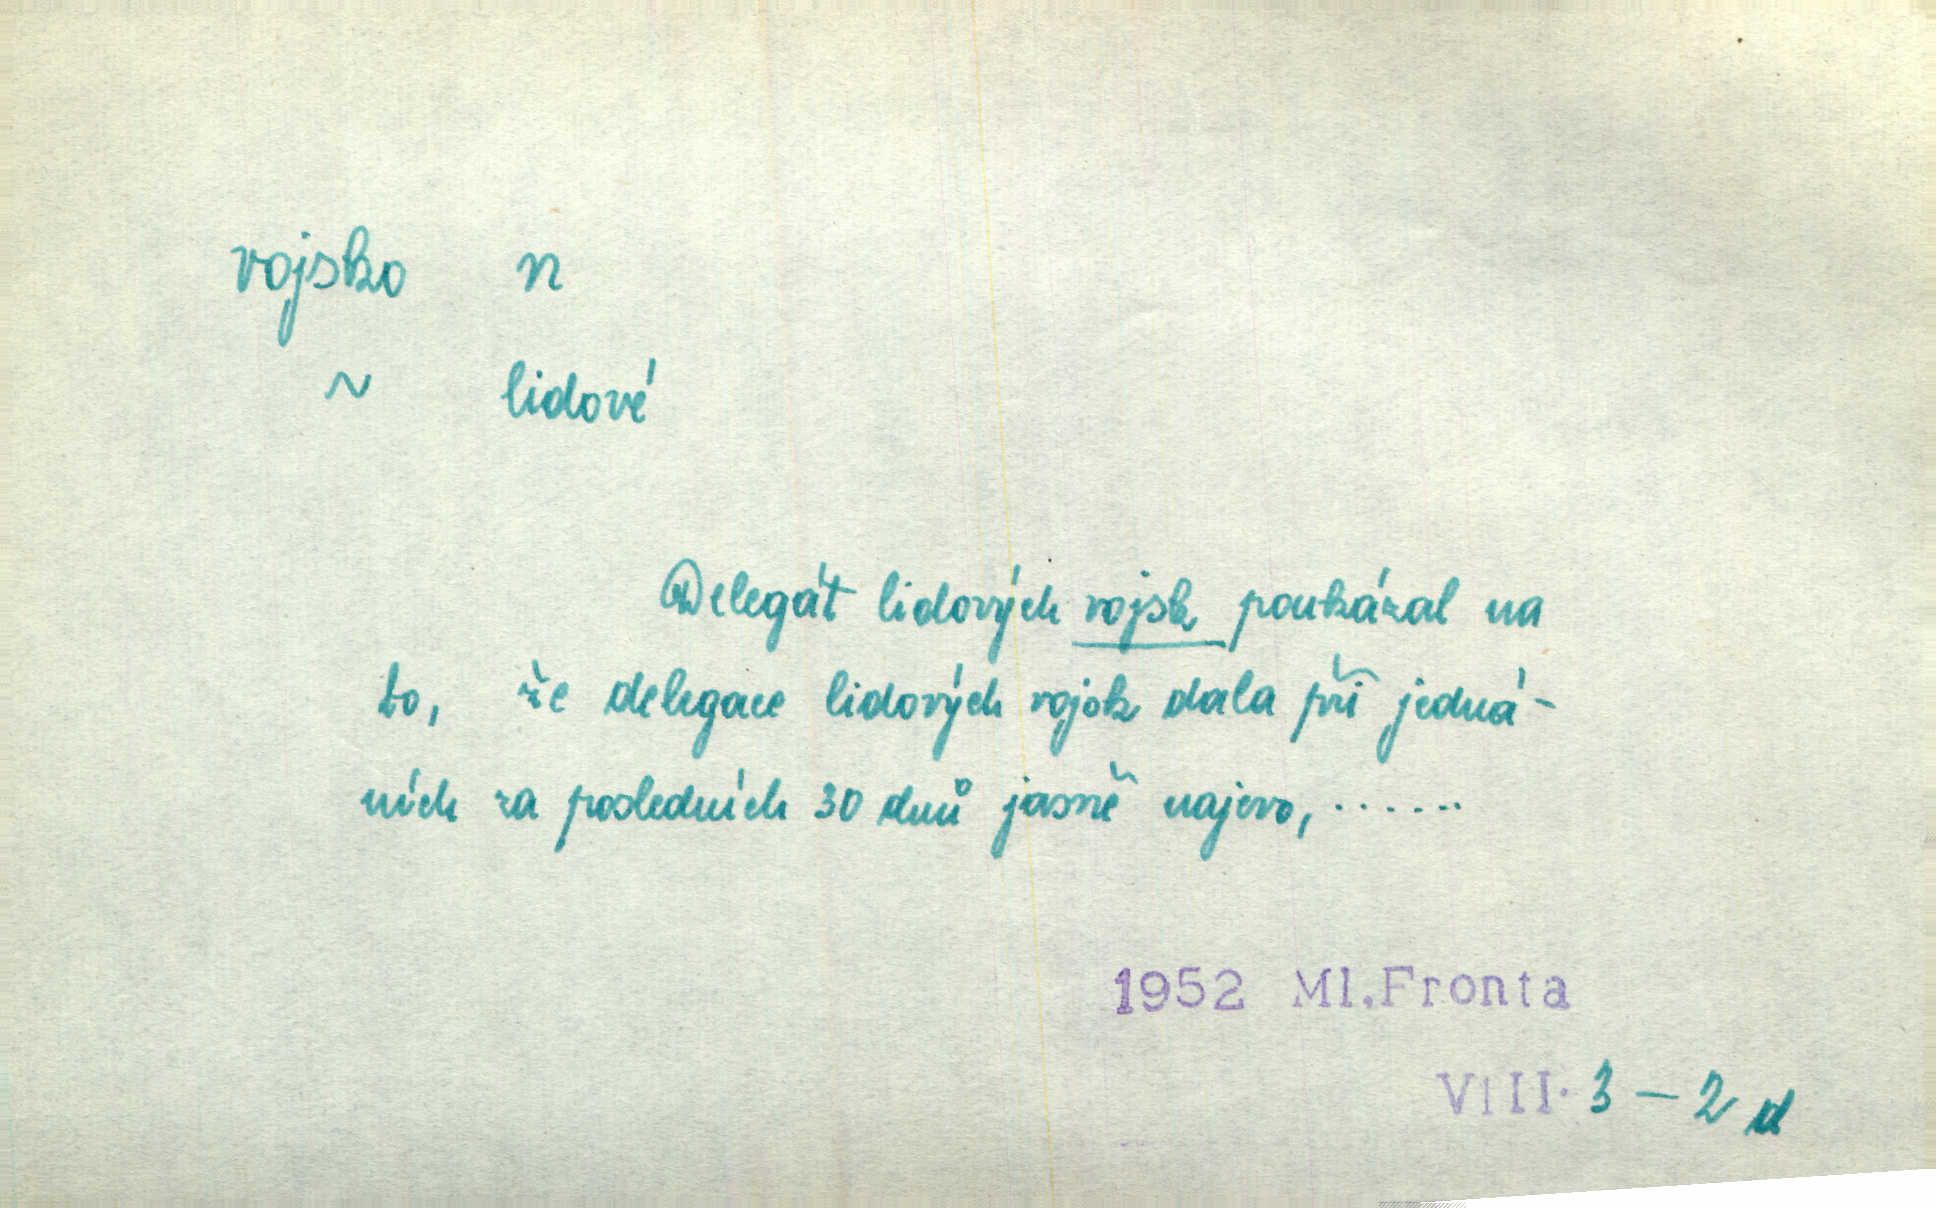 vojsko n
~ lidové
Delegát lidových vojsk poukázal na
to, že delegace lidových vojsk dala při jedná-
ních za posledních 30 dnů jasně najevo, .......
1952 Ml.Fronta
VIII. 3 – 2 d